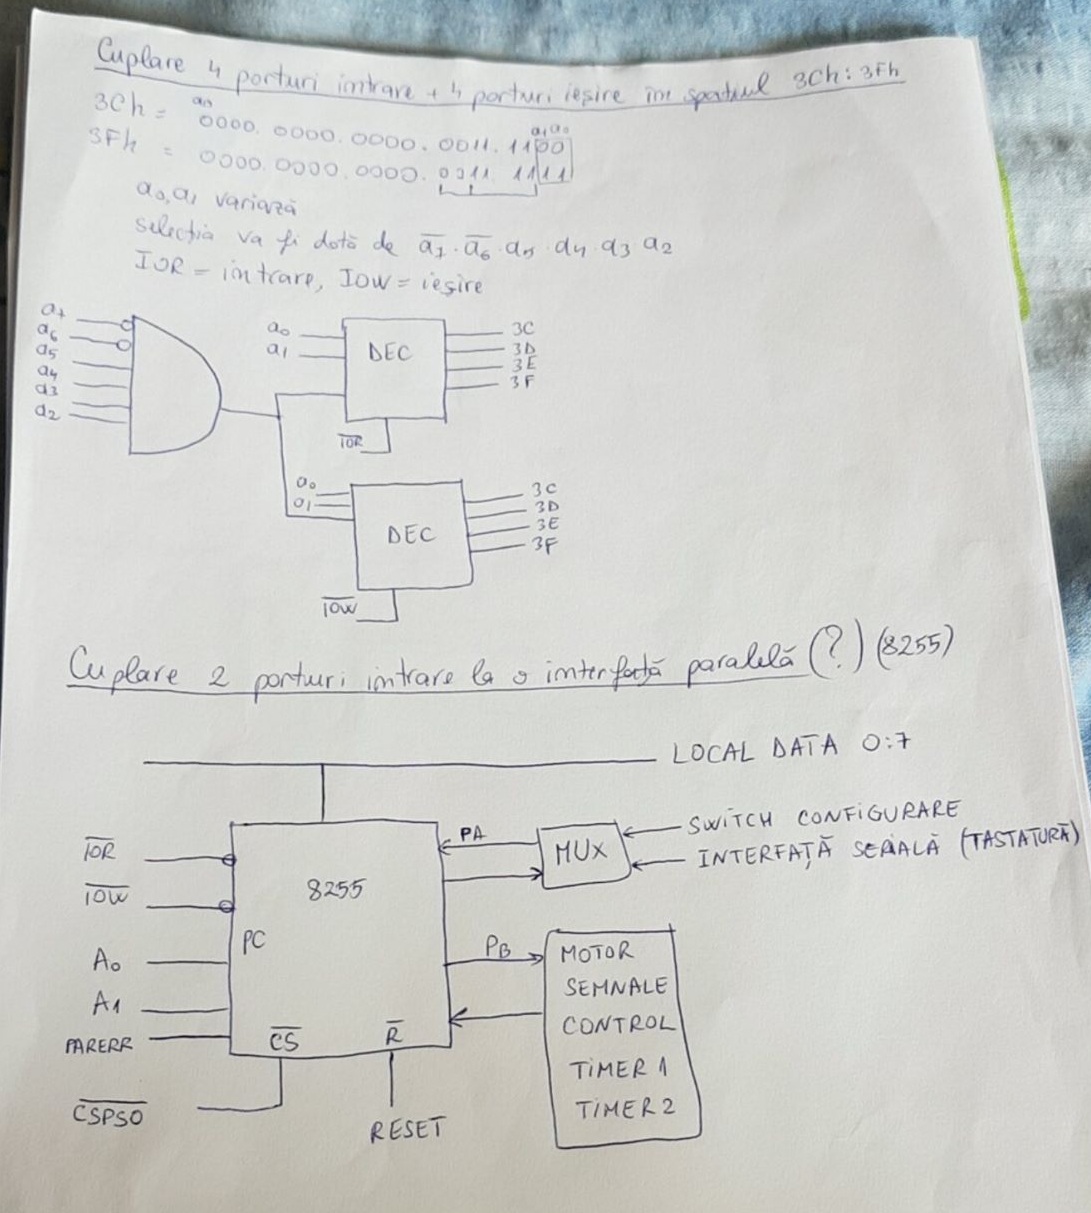 Cuplare 4 porturi intrare + 4 porturi ieșire în spațiul 3Ch:3Fh
3Ch = 0000.0000.0000.0011.1100
a₁a₀
3Fh = 0000.0000.0000.0011 1111
a₀,a₁ variază
selecția va fi dată de a̅₇·a̅₆·a₅·a₄·a₃ a₂
IOR = intrare, IOW = ieșire
a₇
a₆
a₅
a₄
a₃
a₂
a₀
a₁
DEC
3C
3D
3E
3F
I̅O̅R̅
a₀
a₁
DEC
3C
3D
3E
3F
I̅O̅W̅
Cuplare 2 porturi intrare la o interfață paralelă (?) (8255)
LOCAL DATA 0:7
I̅O̅R̅
I̅O̅W̅
A₀
A₁
PARERR
C̅S̅P̅S̅O̅
8255
PC
C̅S̅
R̅
RESET
PA
MUX
SWITCH CONFIGURARE
INTERFAȚĂ SERIALĂ (TASTATURĂ)
PB
MOTOR
SEMNALE
CONTROL
TIMER 1
TIMER 2